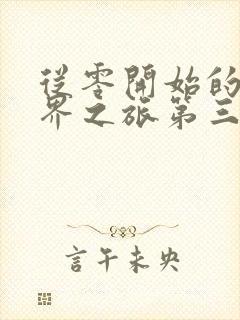 從零開始的
界之旅第三
言午未央